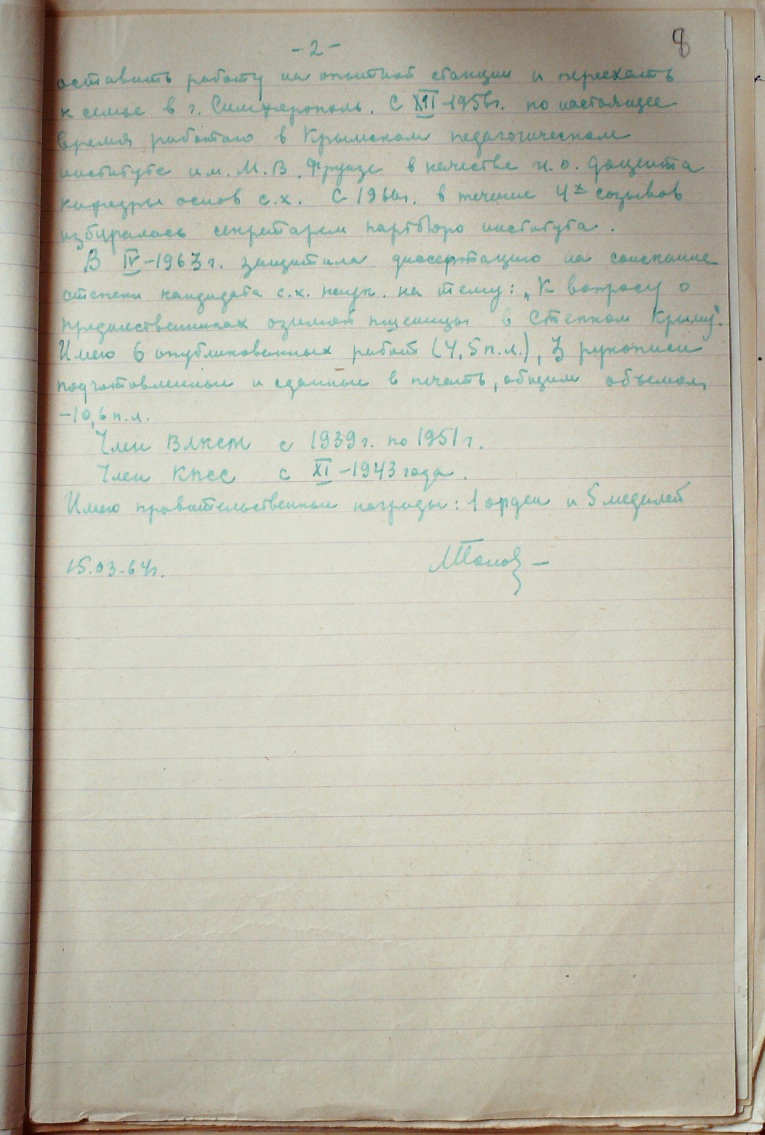 8
-2-
оставить работу на опытной станции и переехать
к семье в г. Симферополь. С XII-1956г. по настоящее
время работаю в Крымском педагогическом
институте им. М.В. Фрунзе в качестве и.о. доцента
кафедры основ с.х. С 1960г. в течение 4х созывов
избиралась секретарем партбюро института.
В IV-1963г. защитила диссертацию на соискание
степени кандидата с.х. наук на тему: „К вопросу о
предшественниках озимой пшеницы в Степном Крыму".
Имею 6 опубликованных работ (4,5п.л.), 3 рукописи
подготовленные и сданные в печать, общим объемом
-10,6 п.л.
Член ВЛКСМ с 1939г. по 1951г.
Член КПСС с XI-1943 года.
Имею правительственные награды: 1 орден и 5 медалей
15.03.64г.